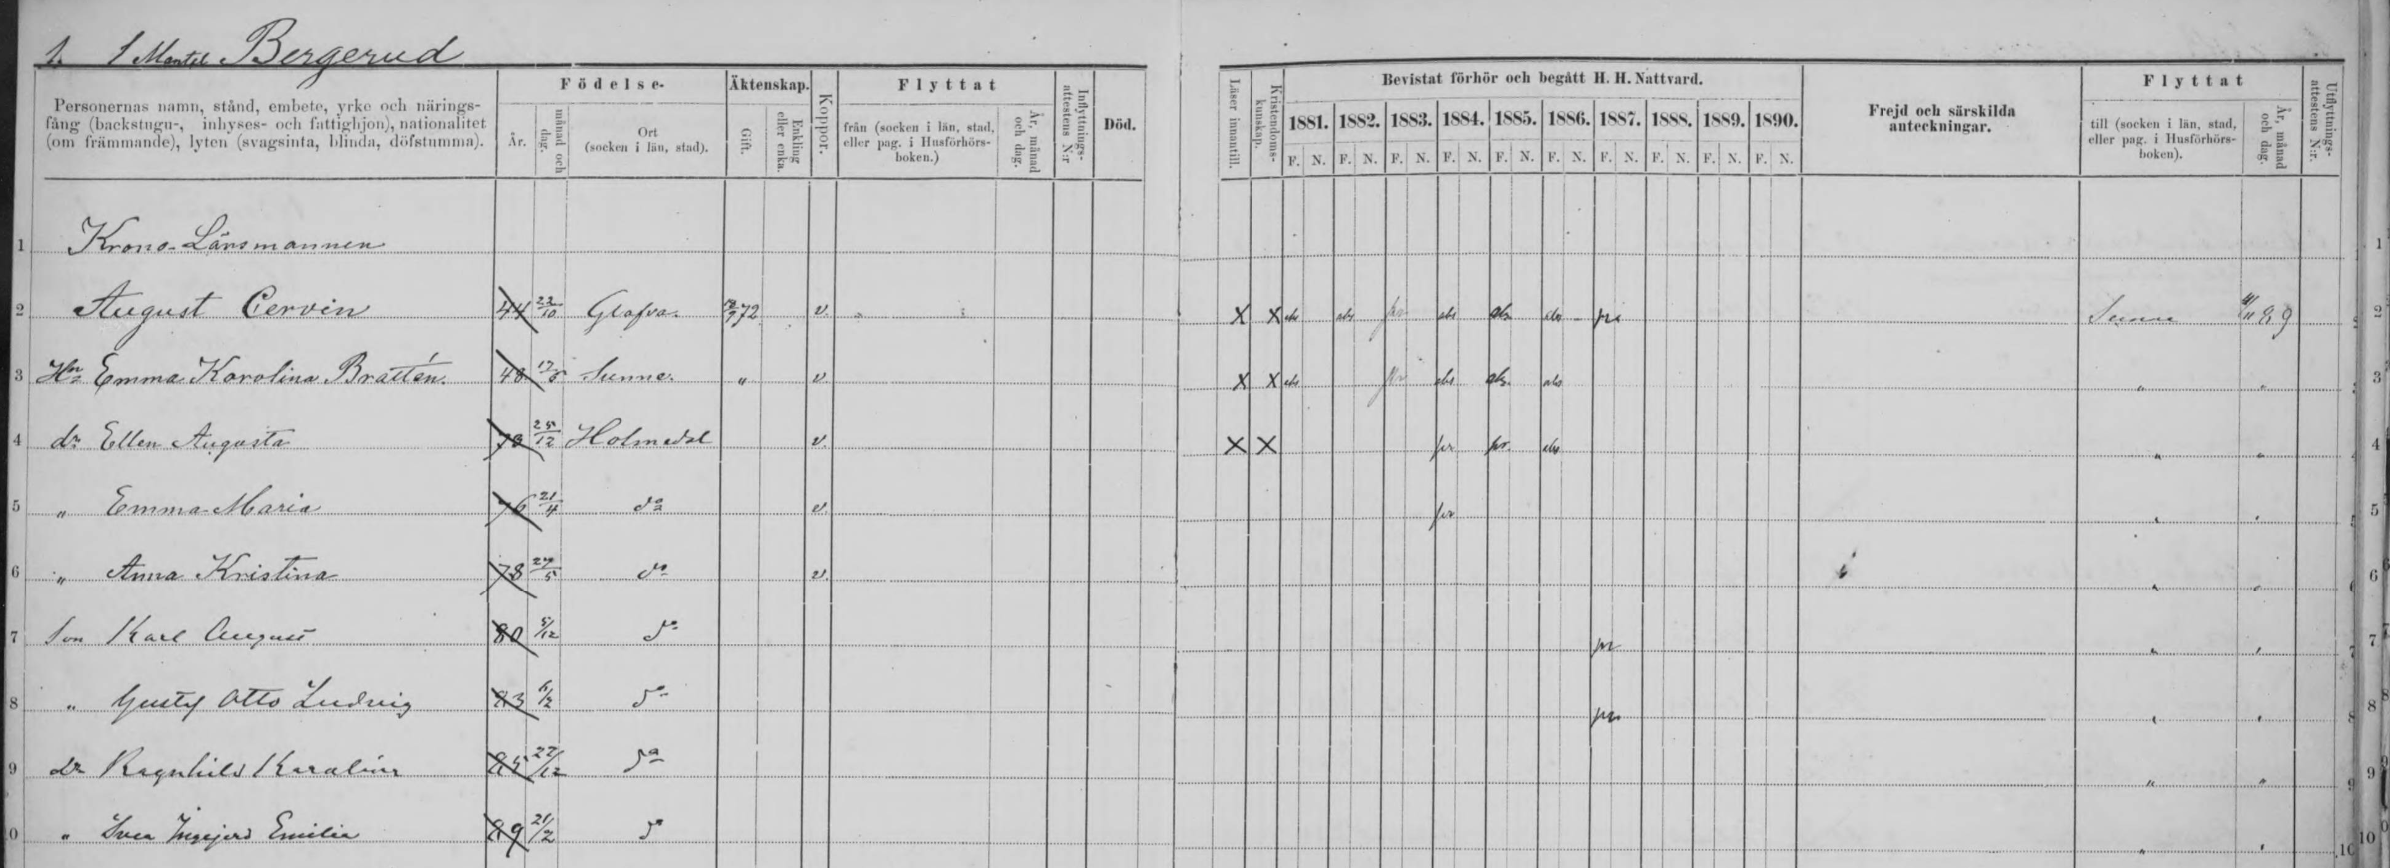 1. 1 Mantel Bergerud
Personernas namn, stånd, embete, yrke och närings-
fång (backstugu-, inhyses- och fattighjon), nationalitet
(om främmande), lyten (svagsinta, blinda, döfstumma).
Födelse-
År.
månad och dag.
Ort
(socken i län, stad).
Äktenskap.
Gift.
Enkling eller enka.
Koppor.
Flyttat
från (socken i län, stad,
eller pag. i Husförhörs-
boken.)
År, månad och dag.
Inflyttnings-attestens N:r
Död.
Läser innantill.
Kristendoms-kunskap.
Bevistat förhör och begått H. H. Nattvard.
1881. 1882. 1883. 1884. 1885. 1886. 1887. 1888. 1889. 1890.
F. N. F. N. F. N. F. N. F. N. F. N. F. N. F. N. F. N. F. N.
Frejd och särskilda
anteckningar.
Flyttat
till (socken i län, stad,
eller pag. i Husförhörs-
boken).
År, månad och dag.
Utflyttnings-attestens N:r.
1 Krono-Länsmannen 1
2 August Cervin 44 22/10 Glafva. 72 v. X X abs abs pr abs abs abs pr Sunne 89 2
3 Hn Emma Karolina Brattén. 48 Sunne. " v X X abs pr abs abs abs " " 3
4 dr Ellen Augusta 73 25/12 Holmedal v. X X pr pr. abs " " 4
5 " Emma Maria 76 21/4 do v. pr " " 5
6 " Anna Kristina 78 do v. " " 6
7 Son Karl August 80 5/12 do pr " " 7
8 " Gustf Otto Ludvig 83 do pr " " 8
9 dr Ragnhild Karolina 85 22/12 do " " 9
10 " Svea Ingejerd Emilia 89 21/2 do " " 10